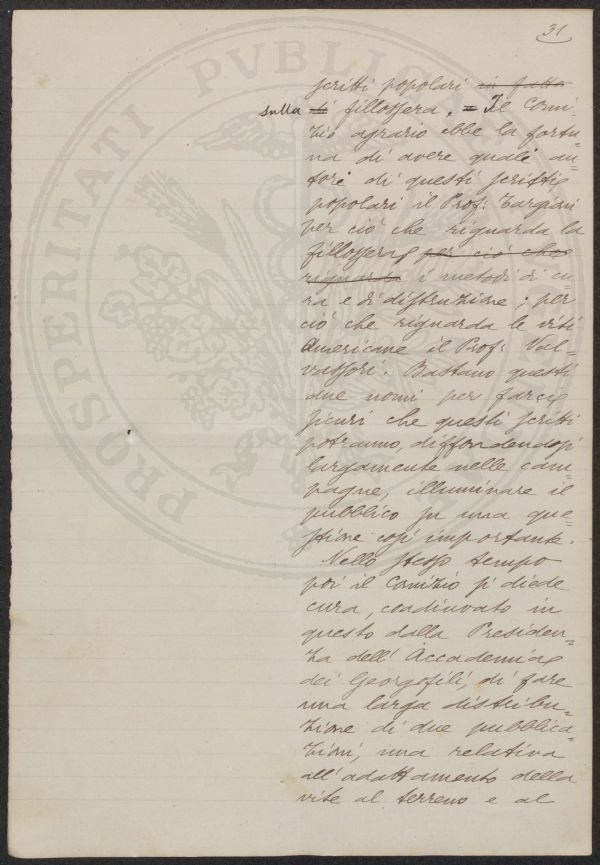 31
scritti popolari in fatto
sulla di fillossera. = Il Comi-
zio agrario ebbe la fortu=
na di avere quali au=
tori di questi scritti
popolari il Prof: Targioni
per ciò che riguarda la
fillossera per ciò che
riguarda i metodi di cu=
ra e di distruzione; per
ciò che riguarda le viti
Americane il Prof: Val=
vassori. Bastano questi
due nomi per farci
sicuri che questi scritti
potranno, diffondendosi
largamente nelle cam=
pagne, illuminare il
pubblico su una que=
stione così importante.
Nello stesso tempo
poi il Comizio si diede
cura, coadiuvato in
questo dalla Presiden=
za dell'Accademia
dei Georgofili, di fare
una larga distribu=
zione di due pubblica=
zioni, una relativa
all'adattamento della
vite al terreno e al
PROSPERITATI PVBLICAE